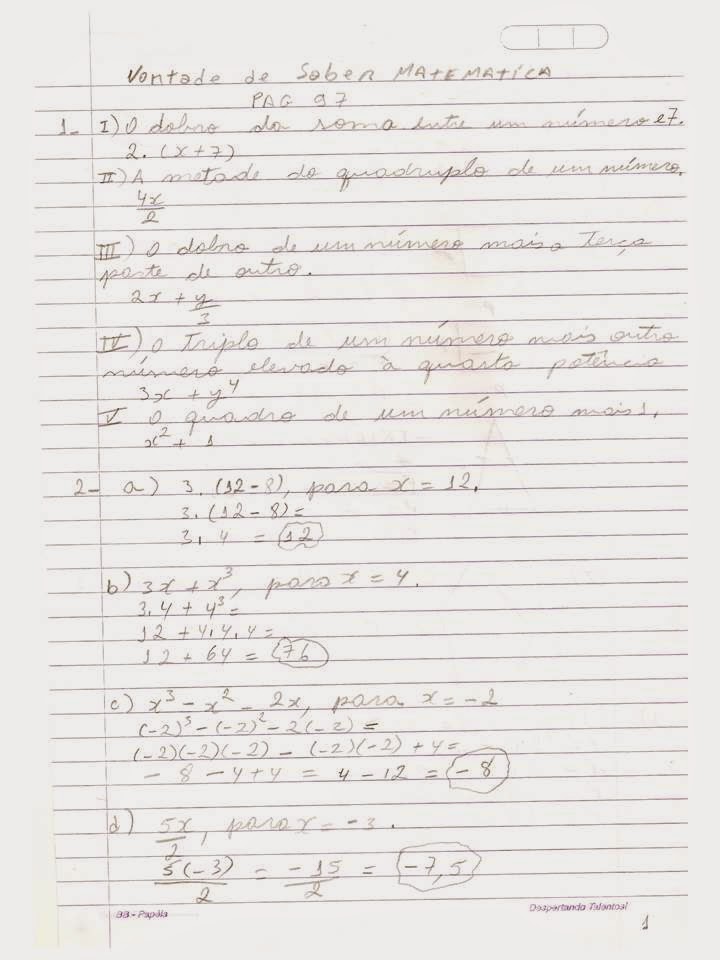 Vontade de Saber MATEMATICA
PAG 97
1- I) O dobro da soma entre um número e 7.
2. (x+7)
II) A metade do quadruplo de um número.
4x/2
III) O dobro de um número mais a Terça
parte de outro.
2x + y/3
IV) O Triplo de um número mais outro
número elevado à quarta potência
3x + y⁴
V O quadro de um número mais 1.
x² + 1
2- a) 3. (12-8), para x = 12.
3. (12-8) =
3. 4 = 12
b) 3x + x³, para x = 4.
3.4 + 4³ =
12 + 4.4.4 =
12 + 64 = 76
c) x³ - x² - 2x, para x = -2
(-2)³ - (-2)² - 2(-2) =
(-2)(-2)(-2) - (-2)(-2) + 4 =
- 8 - 4 + 4 = 4 - 12 = -8
d) 5x/2, para x = -3.
5(-3)/2 = -15/2 = -7,5
BB - Papéla
Despertando Talentosal
1